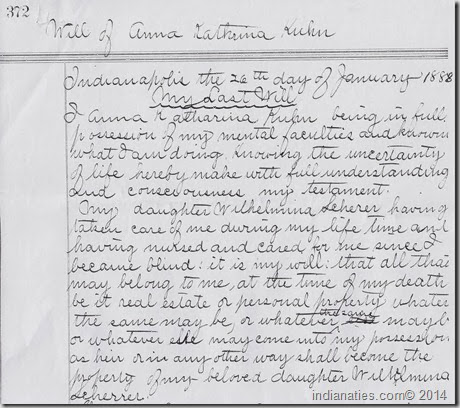 372
Will of Anna Kathrina Kuhn
Indianapolis the 26th day of January 1888
My Last Will
I Anna Katharina Kuhn being in full
possession of my mental faculties and knowing
what I am doing, knowing the uncertainty
of life hereby make with full understanding
and consciousness my testament.
My daughter Wilhelmina Scherer having
taken care of me during my life time and
having nursed and cared for me since I
became blind: it is my will: that all that
may belong to me, at the time of my death
be it real estate or personal property whatever
the same may be, or whatever the same may b
or whatever else may come into my possession
as heir or in any other way shall become the
property of my beloved daughter Wilhelmina
Scherrer
indianaties.com© 2014